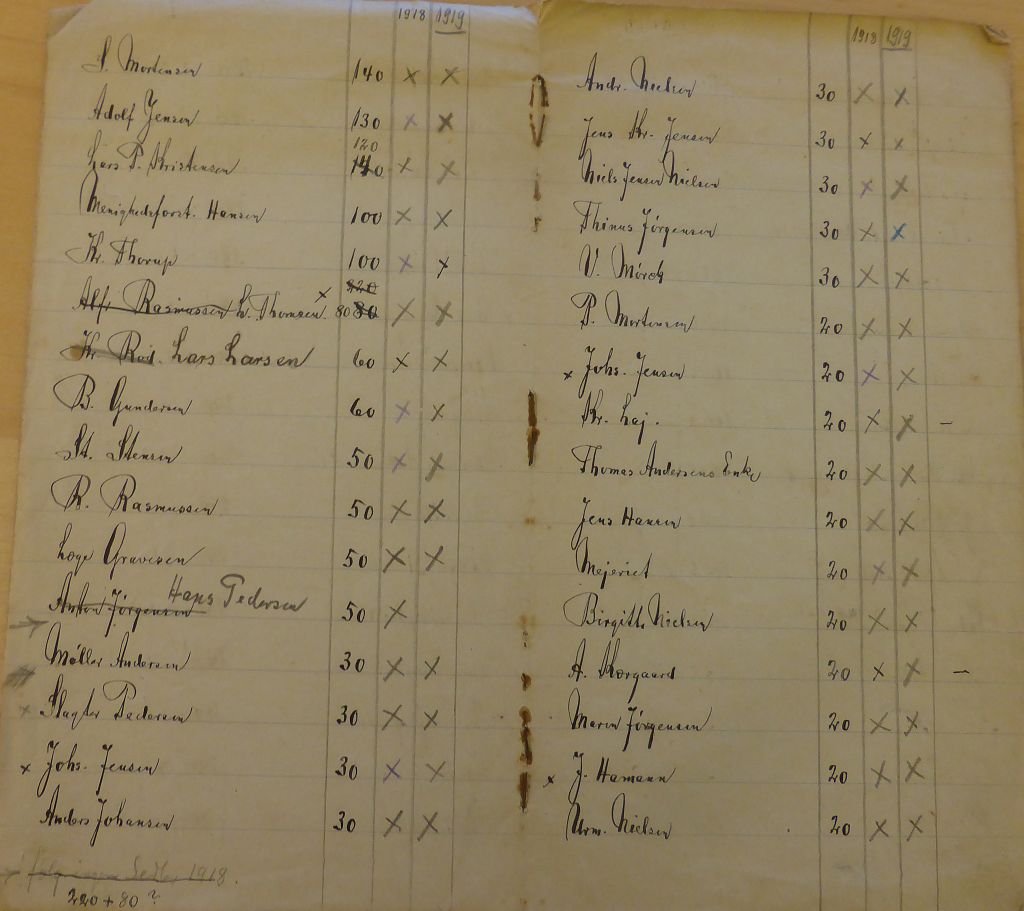 1918 1919
S. Mortensen 140 x x
Adolf Jensen 130 x x
120
Lars P. Kristensen 140 x x
Menighedsforst. Hansen 100 x x
Kr. Thorup 100 x x
220
Alfr. Rasmussen L. Thomsen. x 80 80 x x
Kr. Rod. Lars Larsen 60 x x
B. Gundersen 60 x x
St. Stensen 50 x x
R. Rasmussen 50 x x
Læge Gravesen 50 x x
Anton Jørgensen Hans Pedersen 50 x
Møller Andersen 30 x x
x Slagter Pedersen 30 x x
x Johs. Jensen 30 x x
Anders Johansen 30 x x
1918.
220 + 80 ?
1918 1919
Andr. Nielsen 30 x x
Jens Kr. Jensen 30 x x
Niels Jensen Nielsen 30 x x
Thinus Jørgensen 30 x x
V. Mørch 30 x x
P. Mortensen 20 x x
x Johs. Jensen 20 x x
Kr. Høj. 20 x x –
Thomas Andersens Enke 20 x x
Jens Hansen 20 x x
Mejeriet 20 x x
Birgitte Nielsen 20 x x
A. Korgaard 20 x x –
Maren Jørgensen 20 x x
x J. Hamann 20 x x
Urm. Nielsen 20 x x